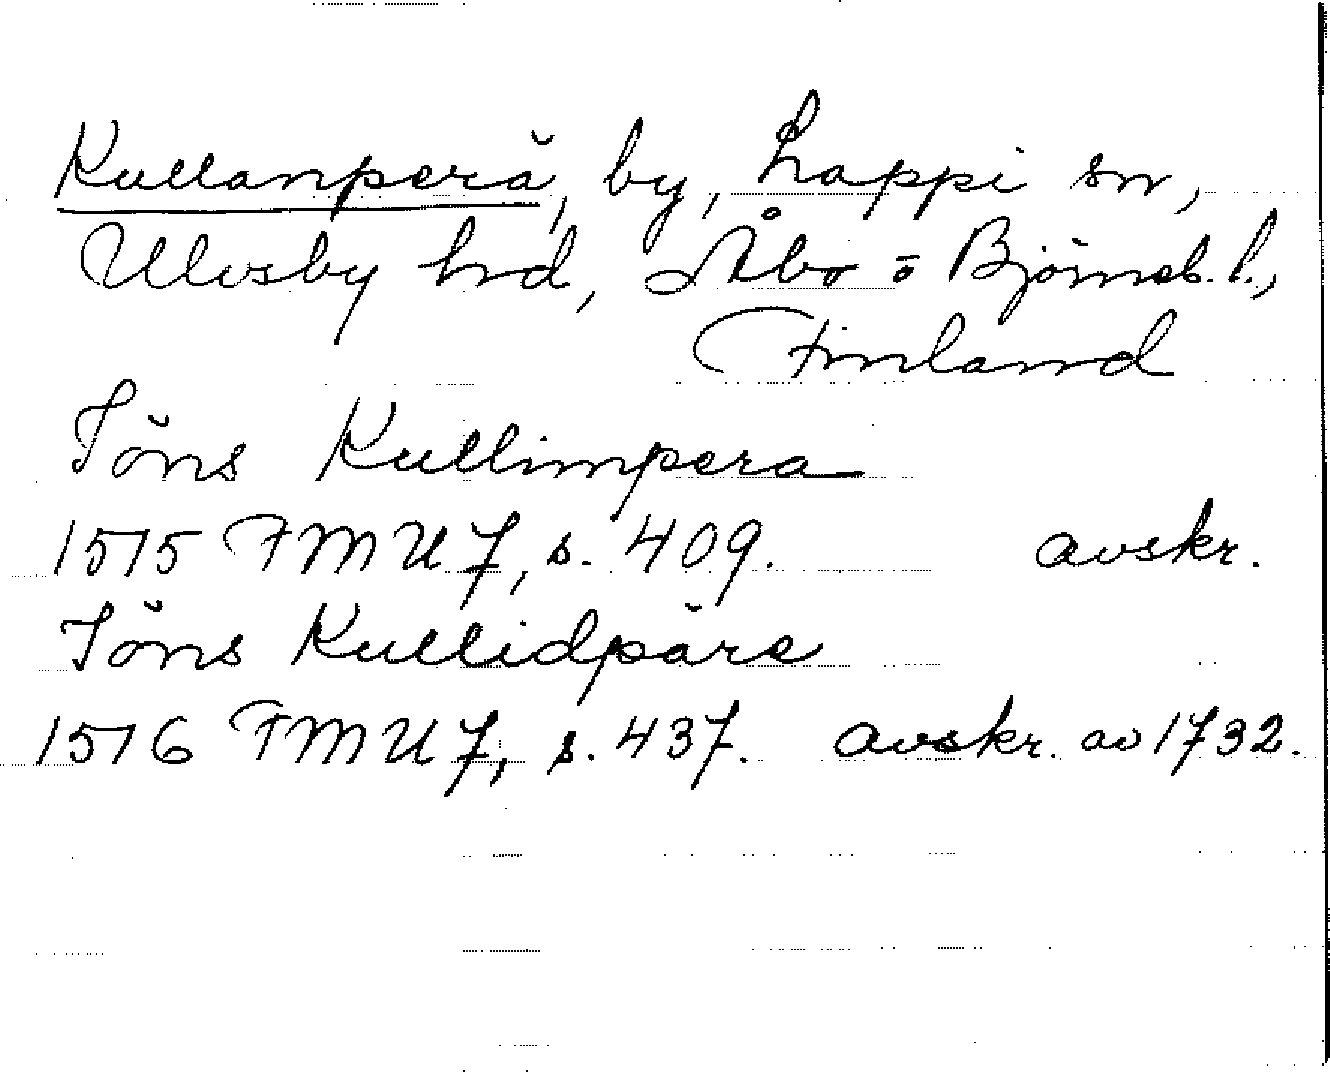 Kullanperä, by, Lappi sn,
Ulvsby hrd, Åbo o Björneb. l.,
Finland
Jöns Kullimpera
1515 FMU 7, s. 409. avskr.
Jöns Kullidpäre
1516 FMU 7, s. 437. avskr. av 1732.